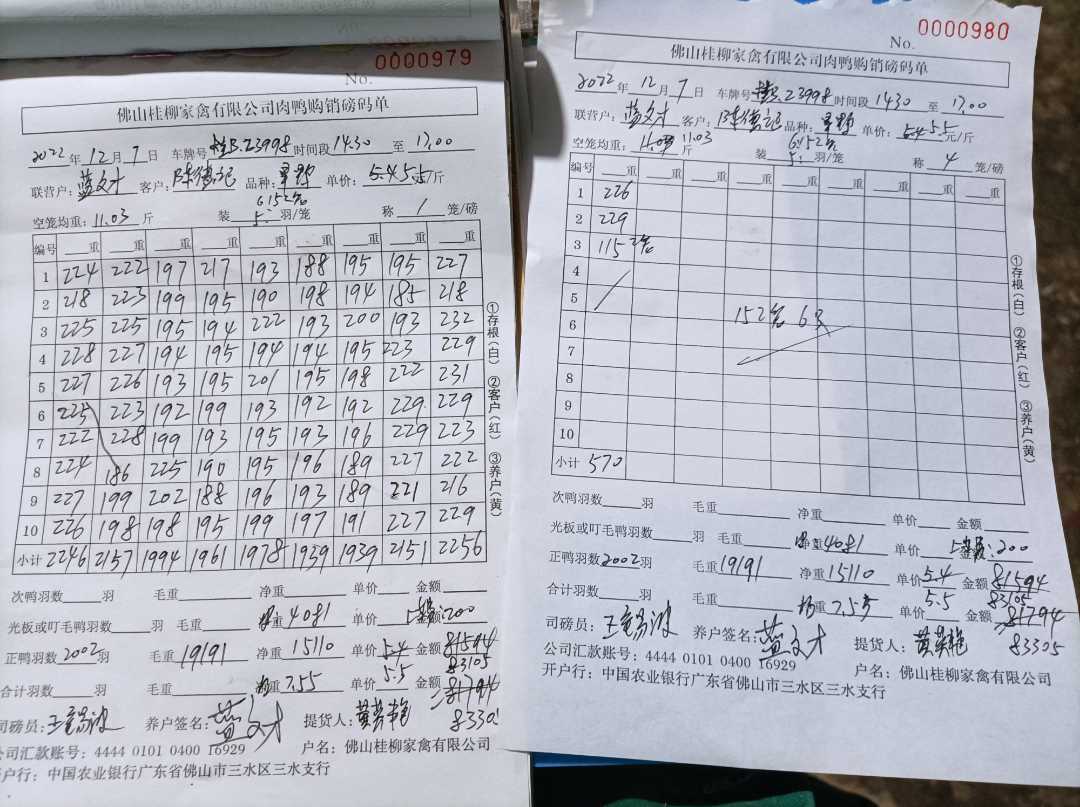 No. 0000979
佛山桂柳家禽有限公司肉鸭购销磅码单
2022年 12月 7日 车牌号 桂B.Z3998 时间段 1430 至 17.00
联营户: 蓝文才 客户: 陈伟记 品种: 单价: 5.4 5.5 元/斤
6152
空笼均重: 11.03 斤 装 5: 羽/笼 称 1 笼/磅
编号 重 重 重 重 重 重 重 重 重
1 224 222 197 217 193 188 195 195 227
2 218 223 199 195 190 198 194 185 218
3 225 225 195 194 222 193 200 193 232
4 228 227 194 195 194 194 195 223 229
5 227 226 193 195 201 195 198 222 231
6 225 223 192 199 193 192 192 229 229
7 222 228 199 193 195 193 196 229 223
8 224 186 225 190 195 196 189 227 222
9 227 199 202 188 196 193 189 221 216
10 226 198 198 195 199 197 191 227 229
小计 2246 2157 1994 1961 1978 1939 1939 2151 2256
①存根(白) ②客户(红) ③养户(黄)
次鸭羽数 羽 毛重 净重 单价 金额
光板或叮毛鸭羽数 羽 毛重 重 4081 单价 200
正鸭羽数 2002 羽 毛重 19191 净重 15110 单价 5.4 金额 81594
5.5 83105
合计羽数 羽 毛重 重 7.55 单价 金额 81794
司磅员: 养户签名: 蓝文才 提货人: 83305
公司汇款账号: 4444 0101 0400 16929 户名: 佛山桂柳家禽有限公司
开户行: 中国农业银行广东省佛山市三水区三水支行
No. 0000980
佛山桂柳家禽有限公司肉鸭购销磅码单
2022年 12月 7日 车牌号 桂B.Z3998 时间段 1430 至 17.00
联营户: 蓝文才 客户: 陈伟记 品种: 单价: 5.4 5.5 元/斤
6152
空笼均重: 11.03 11.03 斤 装 5: 羽/笼 称 4 笼/磅
编号 重 重 重 重 重 重 重 重
1 226
2 229
3 115 2笼
4
5
6 152笼 6只
7
8
9
10
小计 570
①存根(白) ②客户(红) ③养户(黄)
次鸭羽数 羽 毛重 净重 单价 金额
光板或叮毛鸭羽数 羽 毛重 重 4081 单价 200
正鸭羽数 2002 羽 毛重 19191 净重 15110 单价 5.4 金额 81594
5.5 83105
合计羽数 羽 毛重 重 7.55 单价 金额 81794
司磅员: 养户签名: 蓝文才 提货人: 83305
公司汇款账号: 4444 0101 0400 16929 户名: 佛山桂柳家禽有限公司
开户行: 中国农业银行广东省佛山市三水区三水支行